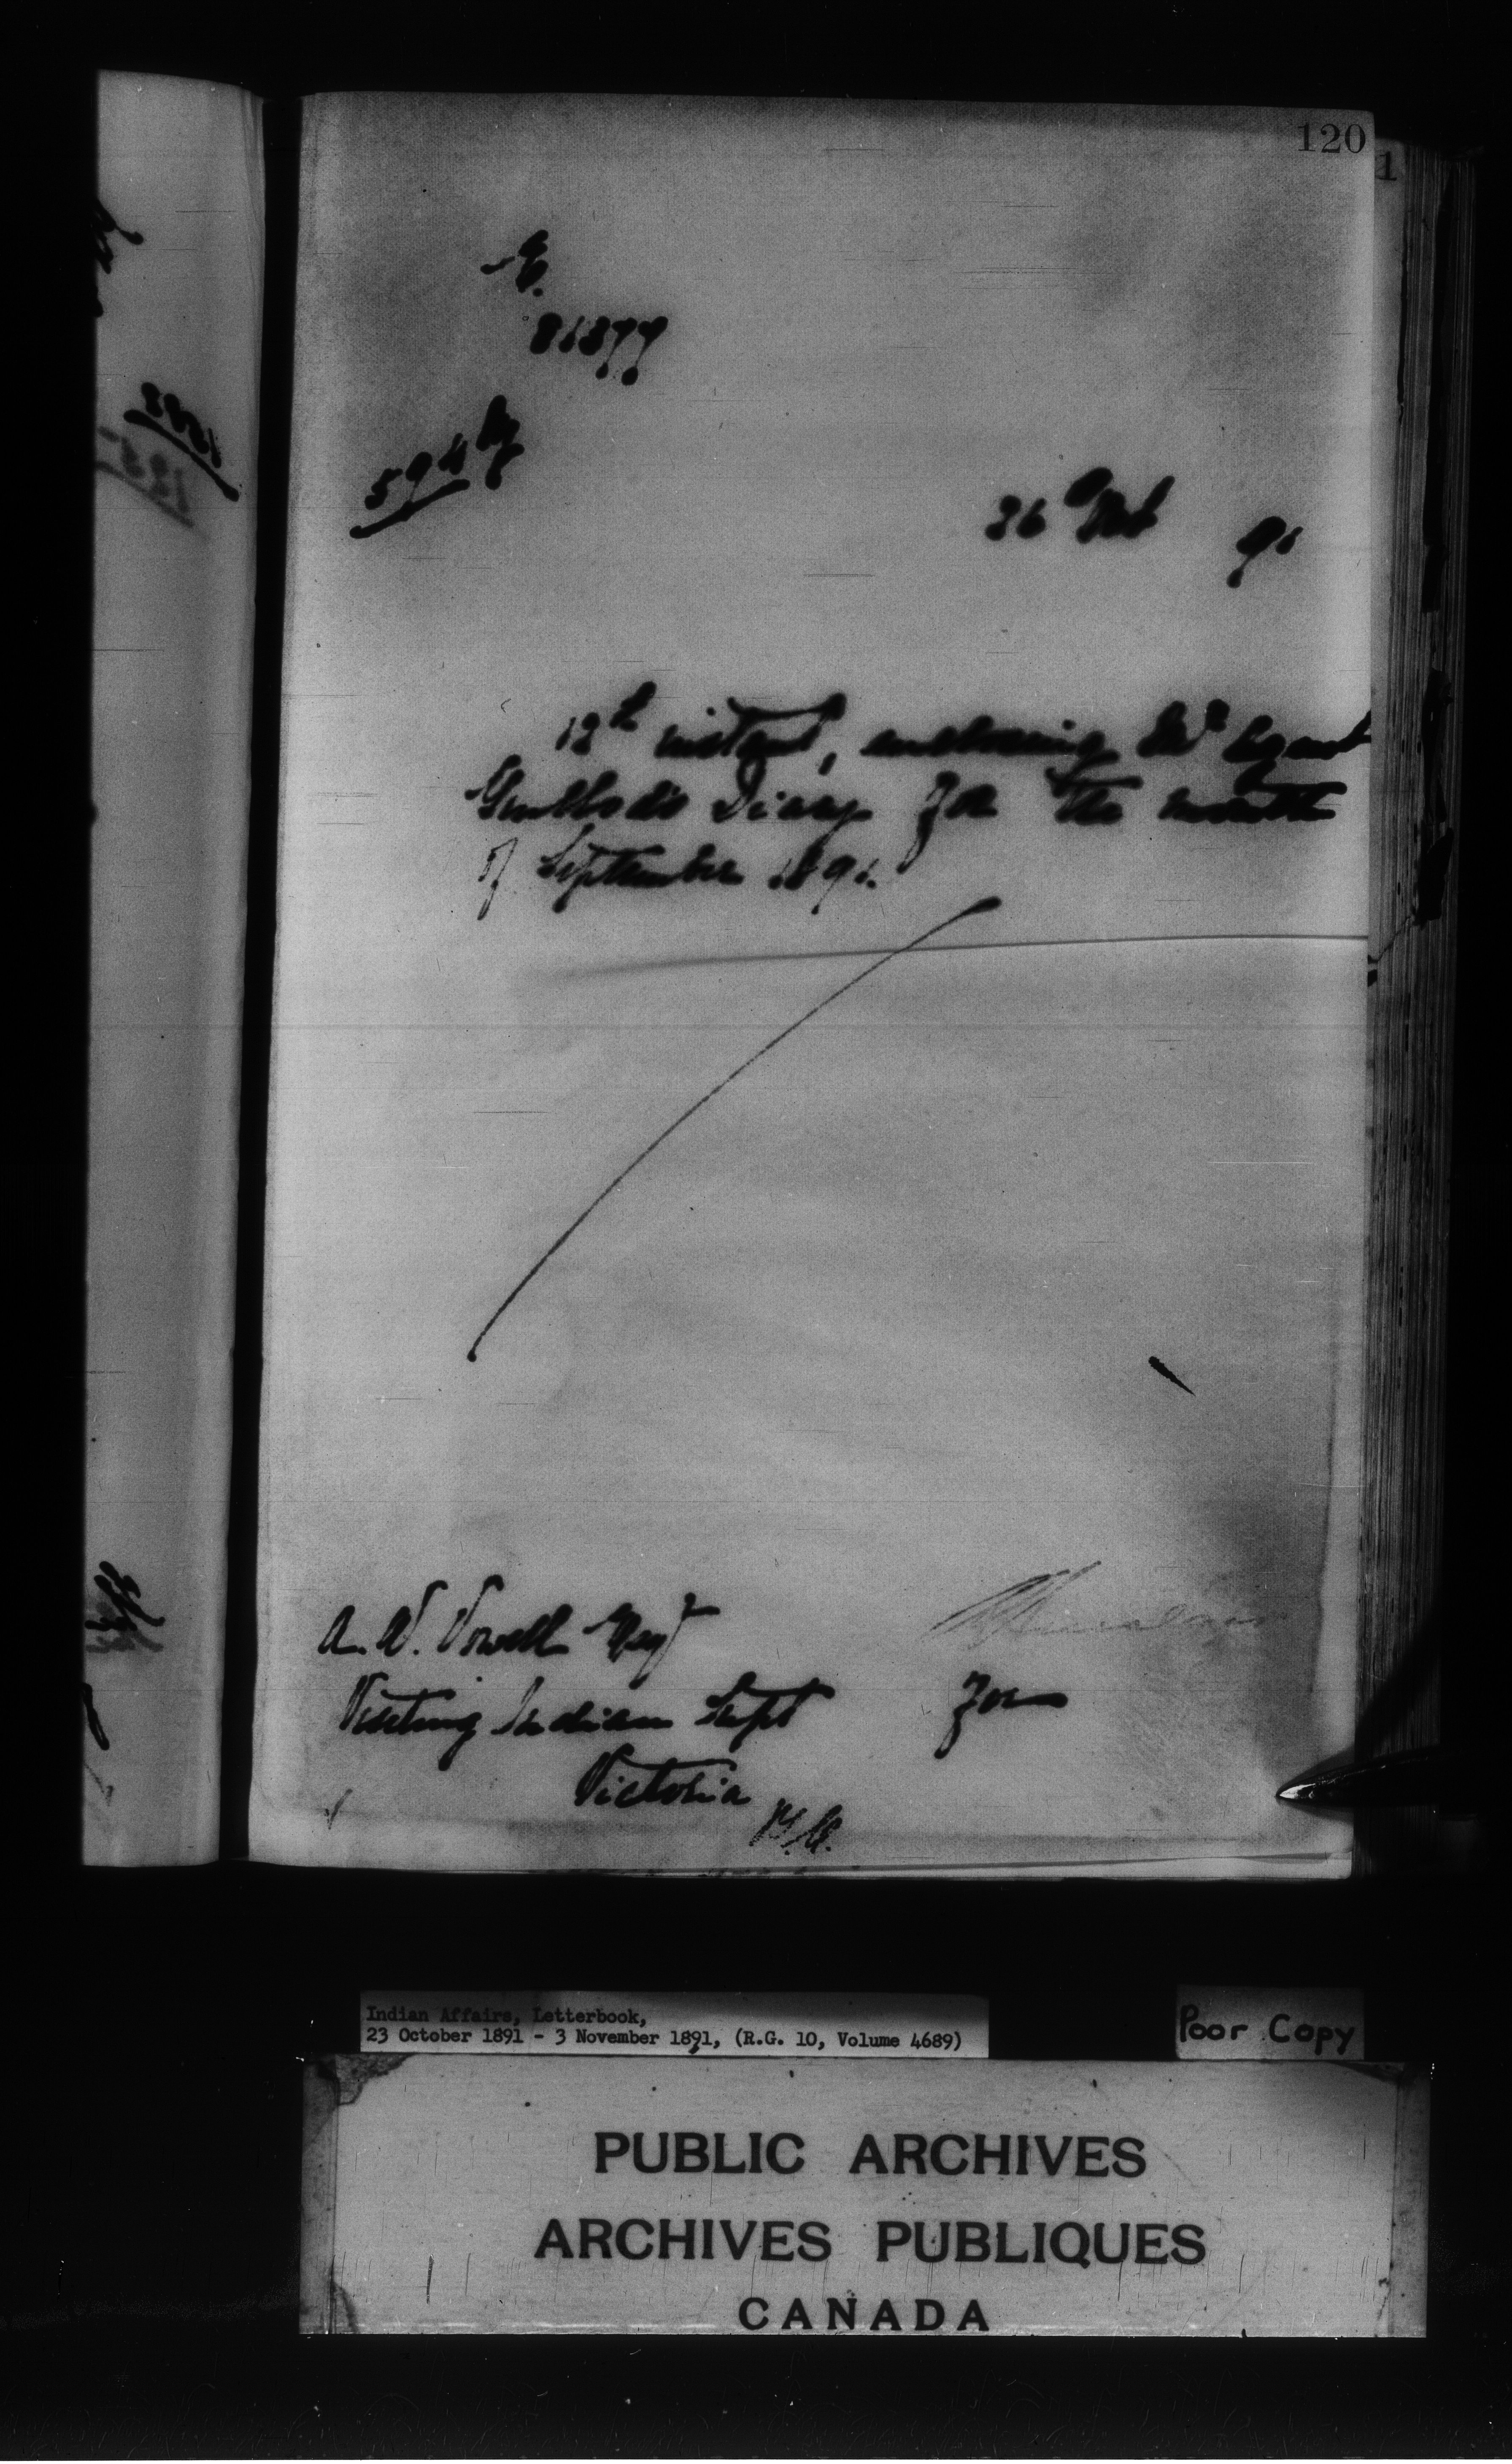 120
1
E.
81877
26 Oct 91
12th instant, enclosing Mr Agent
Guillod's Diary for the month
of September 1891.
A. W. Vowell Esqr
Visiting Indian Supt
for
Victoria
B.C.
Indian Affairs, Letterbook,
23 October 1891 - 3 November 1891, (R.G. 10, Volume 4689)
Poor Copy
PUBLIC ARCHIVES
ARCHIVES PUBLIQUES
CANADA